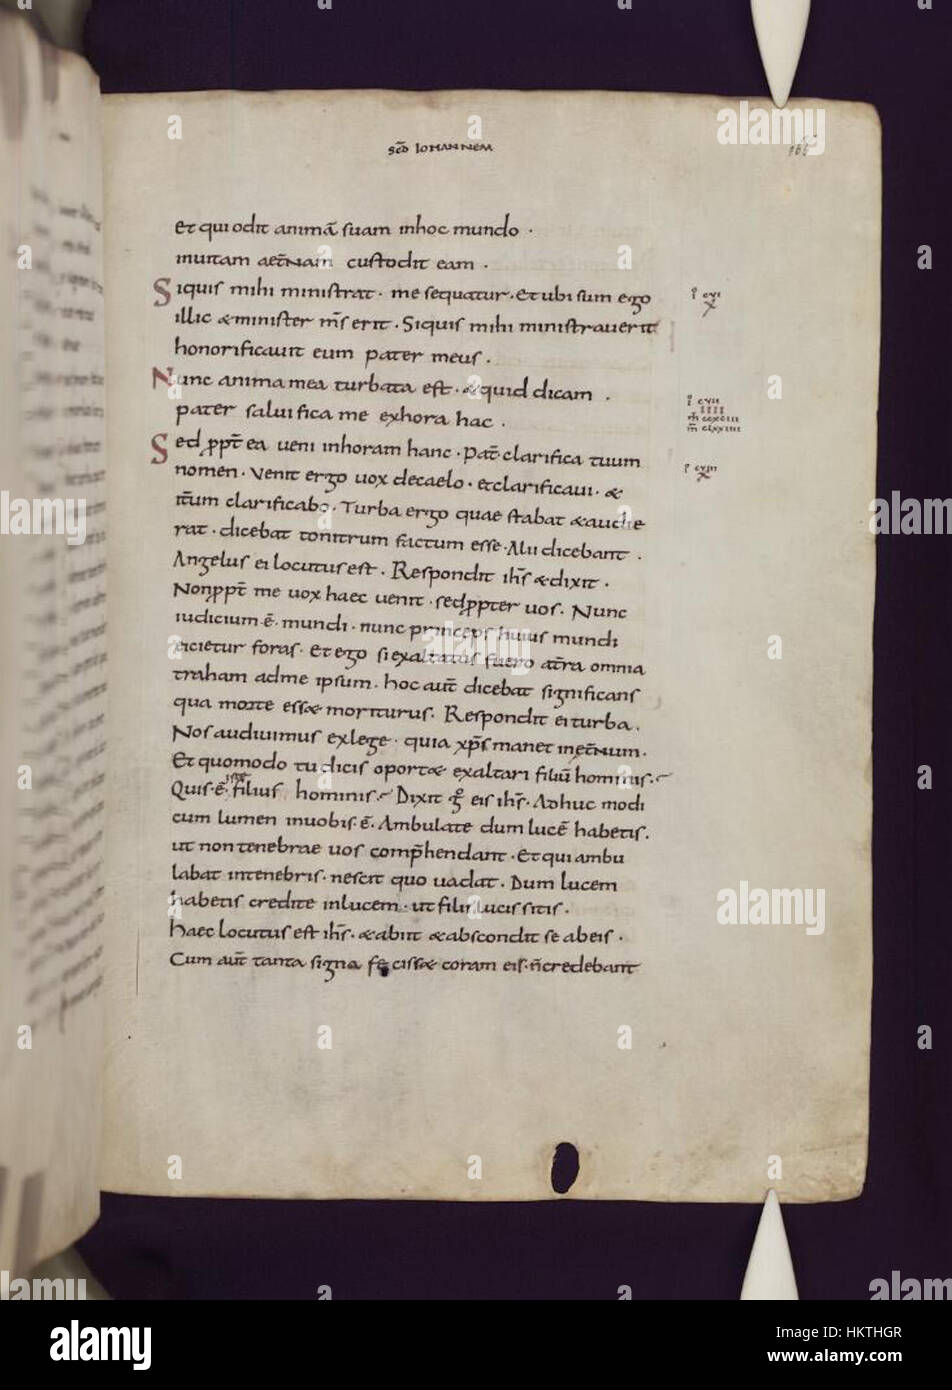 SEĐ IOHANNEM
165
et qui odit animā suam inhoc mundo ·
inuitam aet̄nam custodit eam ·
Siquis mihi ministrat · me sequatur · Et ubi sum ego
illic & minister m̄s erit · Siquis mihi ministrauerit
honorificauit eum pater meus ·
Nunc anima mea turbata est · & quid dicam ·
pater saluifica me exhora hac ·
Sed ꝓpt̄ ea ueni inhoram hanc · Pat̄ clarifica tuum
nomen · Venit ergo uox decaelo · et clarificaui · &
it̄um clarificabo · Turba ergo quae stabat & audie
rat · dicebat tonitrum factum esse · Alii dicebant ·
Angelus ei locutus est · Respondit ih̄s & dixit ·
Non ꝓpt̄ me uox haec uenit · sed ꝓpter uos · Nunc
iudicium ·ē· mundi · nunc princeps huius mundi
eicietur foras · Et ego si exaltatus fuero at̄ra omnia
traham adme ipsum · hoc aut̄ dicebat significans
qua morte ess& moriturus · Respondit ei turba ·
Nos audiuimus exlege · quia xp̄s manet inet̄num ·
Et quomodo tu dicis oport& exaltari filiū hominis ·
Quis ·ē· iste filius hominis · Dixit gͦ eis ih̄s · Adhuc modi
cum lumen inuobis ·ē· Ambulate dum lucē habetis ·
ut non tenebrae uos comp̄hendant · Et qui ambu
labat intenebris · nescit quo uadat · Dum lucem
habetis credite inlucem · ut filii lucis sitis ·
haec locutus est ih̄s · & abiit & abscondit se abeis ·
Cum aut̄ tanta signa feciss& coram eis · n̄ credebant
i cvi
x
i cvii
IIII
m̄ ccxciii
m̄ clxxiiii
i cviii
x
alamy
Image ID: HKTHGR
www.alamy.com